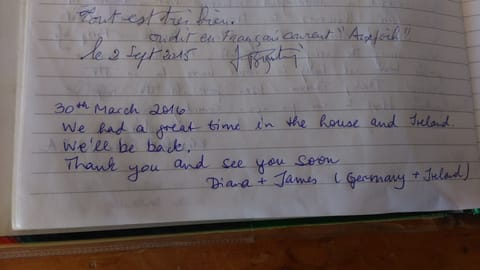 Tout est très bien.
ou dit en Français courant "Airefoih"
le 2 Sept 2015
30th March 2016
We had a great time in the house and Ireland.
We'll be back.
Thank you and see you soon
Diana + James (Germany + Ireland)